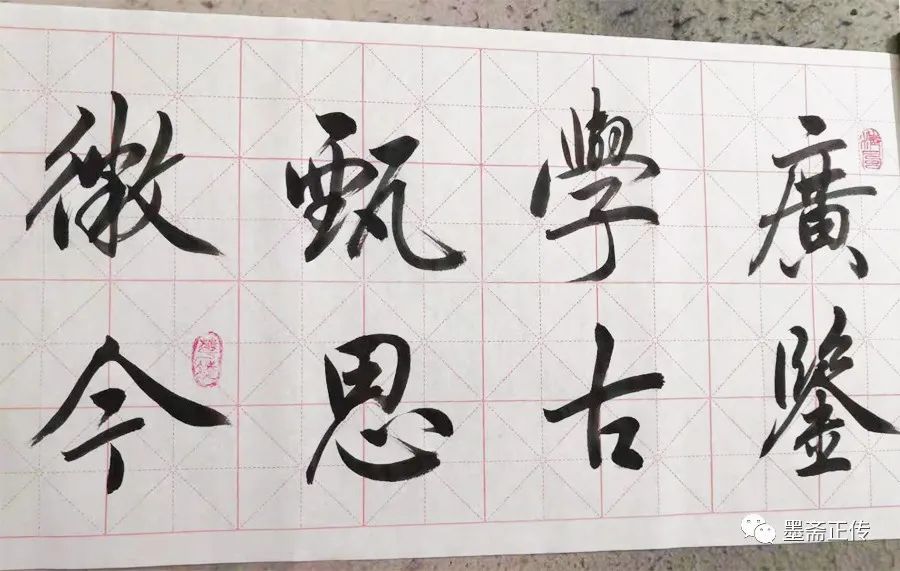 廣學甄微
鑒古思今
墨斋正传